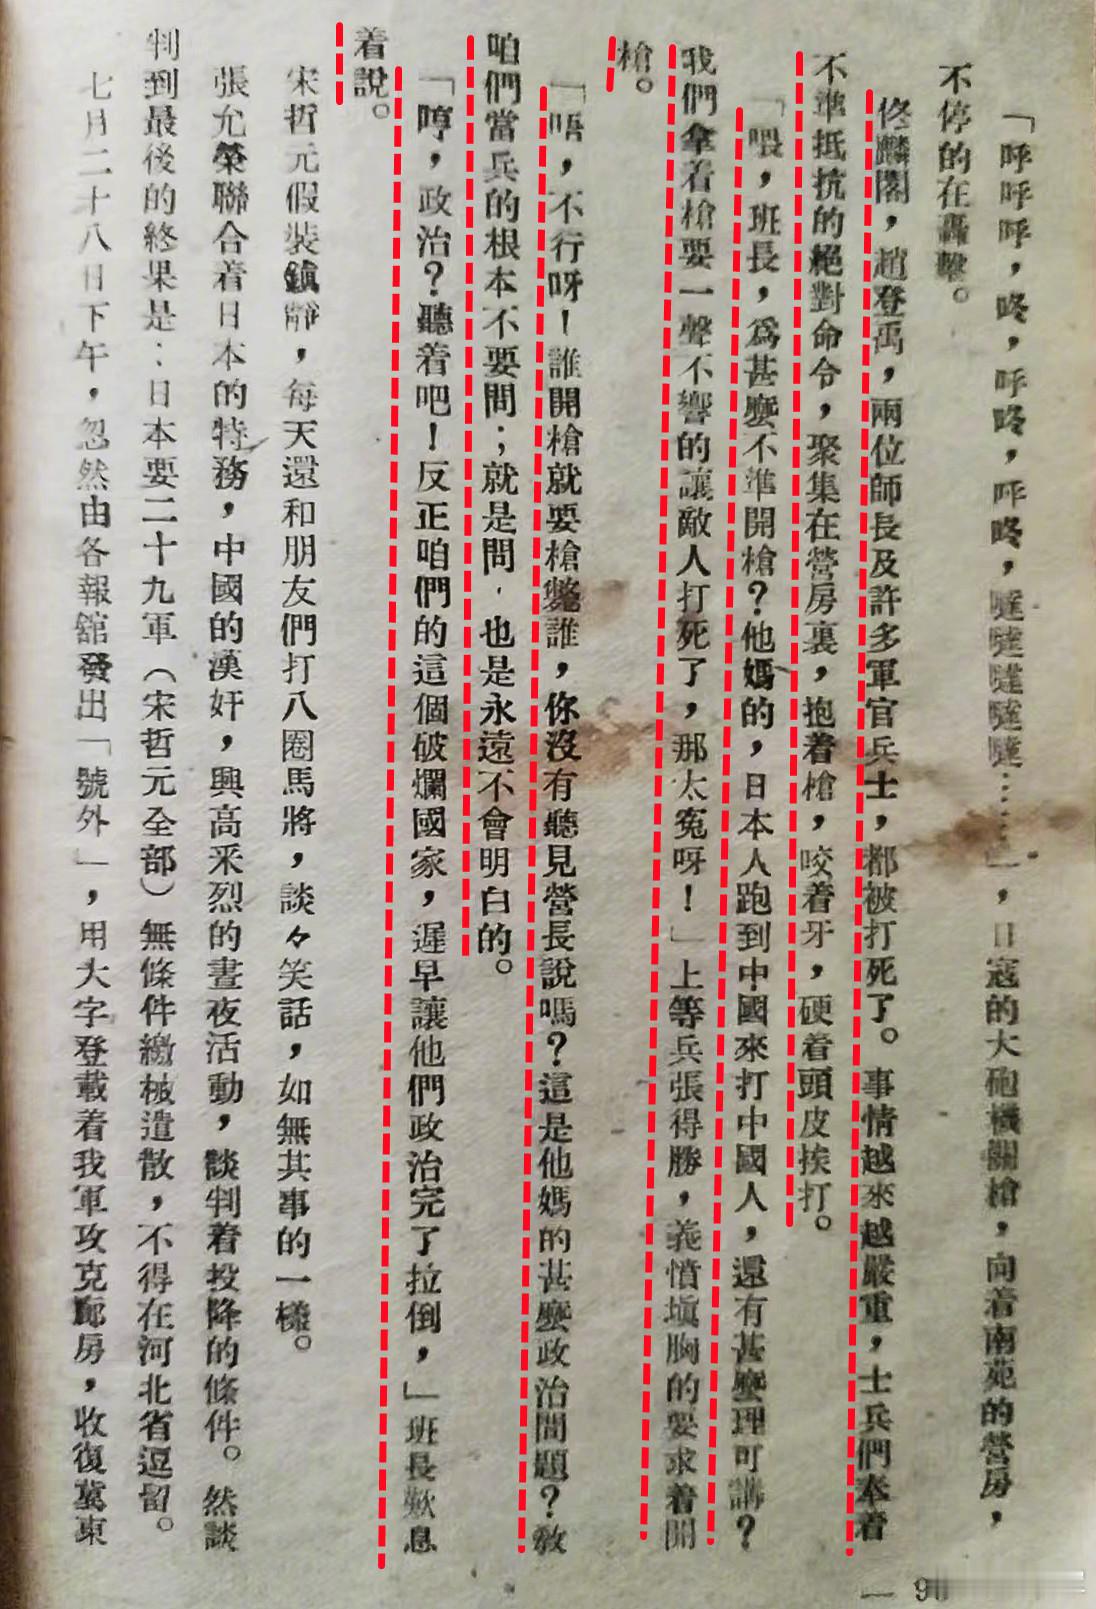 「呼呼呼，咚，呼咚，呼咚，噠噠噠噠噠……」，日寇的大砲機關槍，向着南苑的營房，
不停的在轟擊。
佟麟閣，趙登禹，兩位師長及許多軍官兵士，都被打死了。事情越來越嚴重，士兵們奉着
不準抵抗的絕對命令，聚集在營房裏，抱着槍，咬着牙，硬着頭皮挨打。
「喂，班長，爲甚麼不準開槍？他媽的，日本人跑到中國來打中國人，還有甚麼理可講？
我們拿着槍要一聲不響的讓敵人打死了，那太寃呀！」上等兵張得勝，義憤塡胸的要求着開
槍。
「唔，不行呀！誰開槍就要槍斃誰，你沒有聽見營長說嗎？這是他媽的甚麼政治問題？敎
咱們當兵的根本不要問；就是問，也是永遠不會明白的。
「哼，政治？聽着吧！反正咱們的這個破爛國家，遲早讓他們政治完了拉倒，」班長歎息
着說。
宋哲元假裝鎭靜，每天還和朋友們打八圈馬將，談々笑話，如無其事的一樣。
張允榮聯合着日本的特務，中國的漢奸，興高釆烈的晝夜活動，談判着投降的條件。然談
判到最後的終果是：日本要二十九軍（宋哲元全部）無條件繳械遣散，不得在河北省逗留。
七月二十八日下午，忽然由各報舘發出「號外」，用大字登載着我軍攻克廊房，收復冀東
— 9